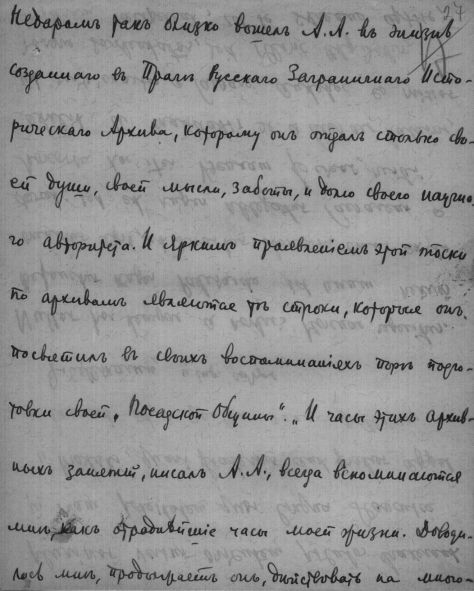 27
Недаромъ такъ близко вошелъ А.А. въ жизнь
созданнаго въ Прагѣ Русскаго Заграничнаго Исто-
рическаго Архива, которому онъ отдалъ столько сво-
ей души, своей мысли, заботы, и долю своего научна-
го авторитета. И яркимъ проявленіемъ этой тоски
по архивамъ являются тѣ строки, которые онъ
посвятилъ въ своихъ воспоминаніяхъ порѣ подго-
товки своей „Посадской Общины“. „И часы этихъ архив-
ныхъ занятій, писалъ А.А., всегда вспоминаются
мнѣ, какъ отраднѣйшіе часы моей жизни. Доводи-
лось мнѣ, продолжаетъ онъ, дѣйствовать на много-